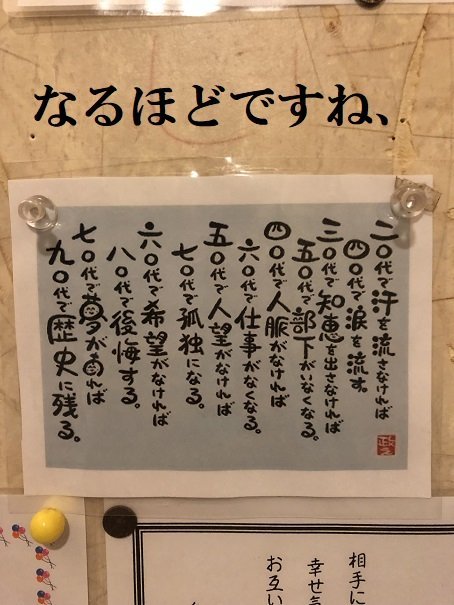 なるほどですね、
二〇代で汗を流さなければ
四〇代で涙を流す。
三〇代で知恵を出さなければ
五〇代で部下がいなくなる。
四〇代で人脈がなければ
六〇代で仕事がなくなる。
五〇代で人望がなければ
七〇代で孤独になる。
六〇代で希望がなければ
八〇代で後悔する。
七〇代で夢があれば
九〇代で歴史に残る。
相手に
幸せ
お互い